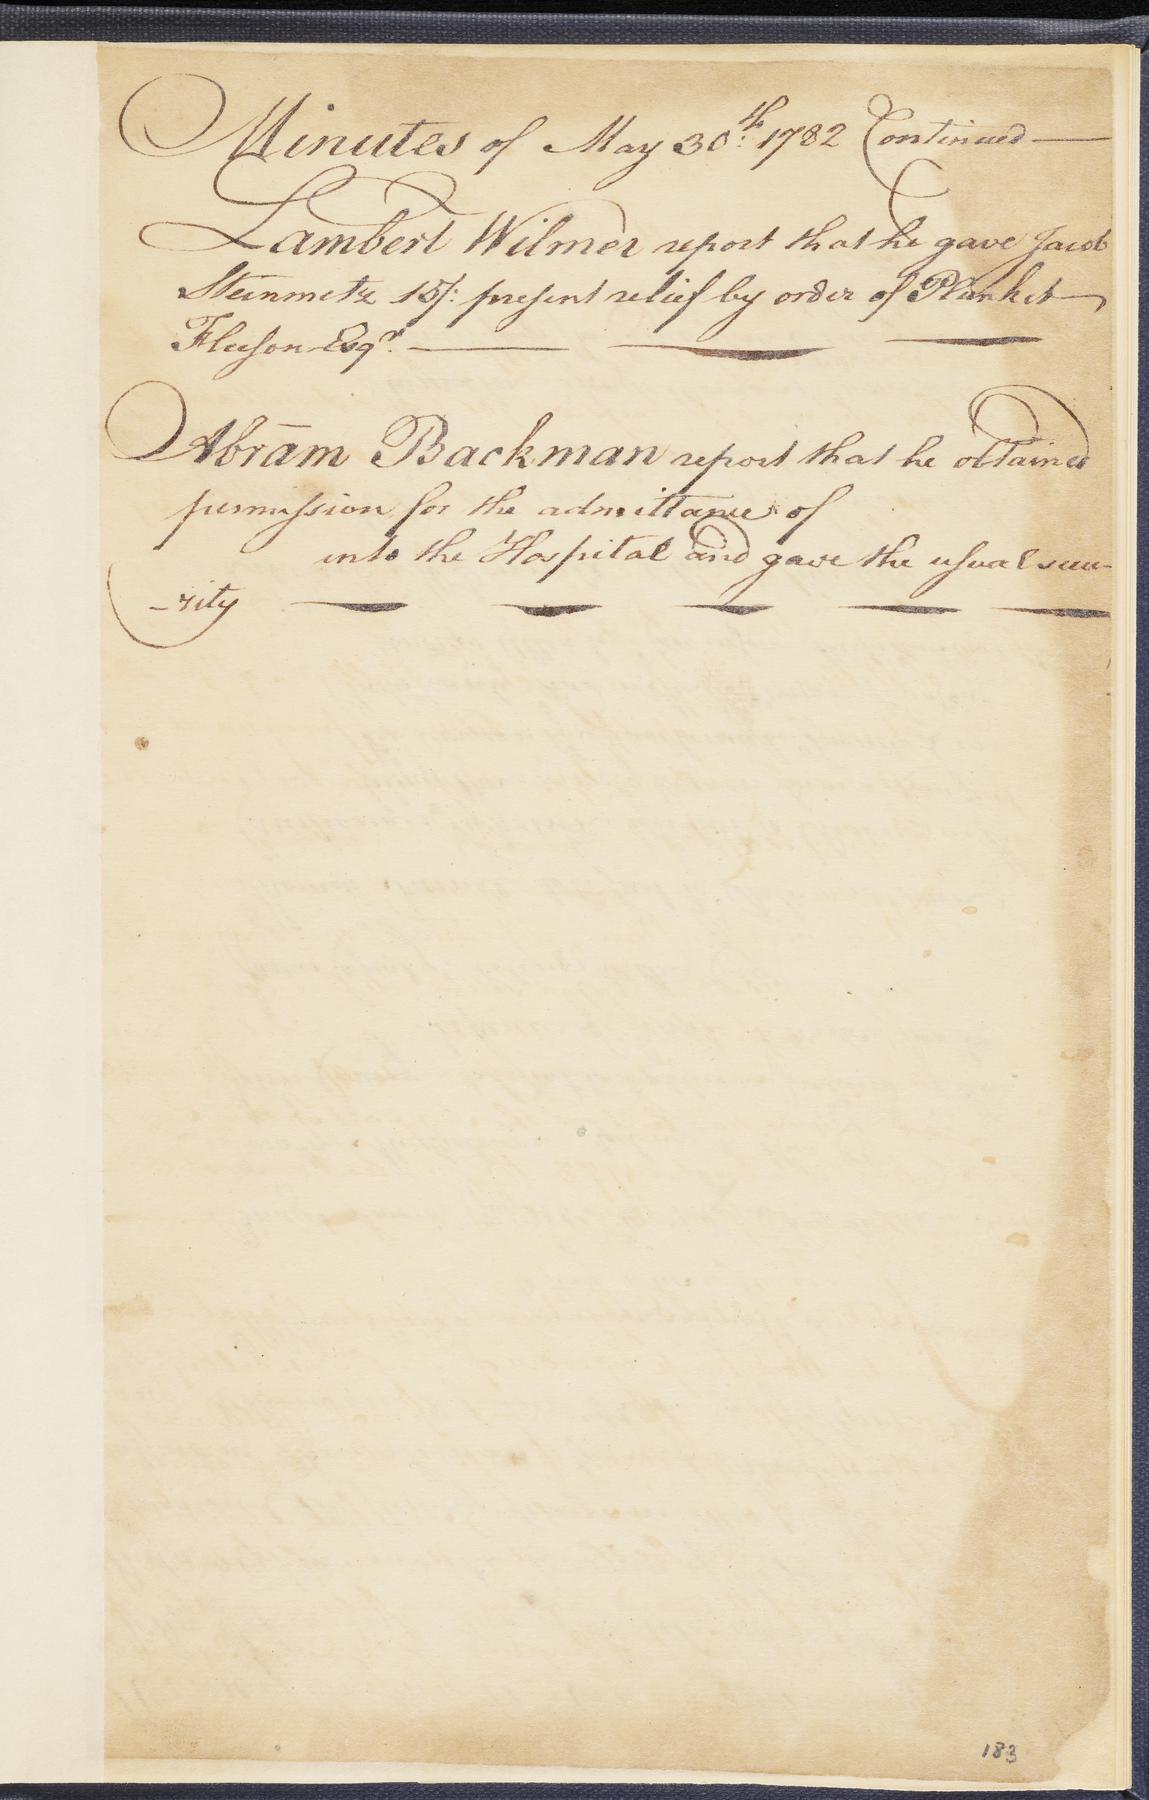 Minutes of May 30th: 1782 Continued —
Lambert Wilmer report that he gave Jacob
Steinmetz 15/: present relief by order of Plunket
Fleeson Esqr. —
Abrām Backman report that he obtained
permission for the admittance of
into the Hospital and gave the usual secu-
-rity
183